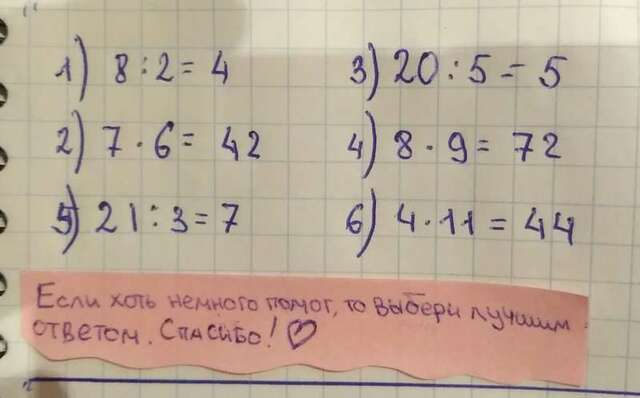 1) 8:2=4
3) 20:5=5
2) 7·6=42
4) 8·9=72
5) 21:3=7
6) 4·11=44
Если хоть немного помог, то выбери лучшим
ответом. Спасибо! ♡